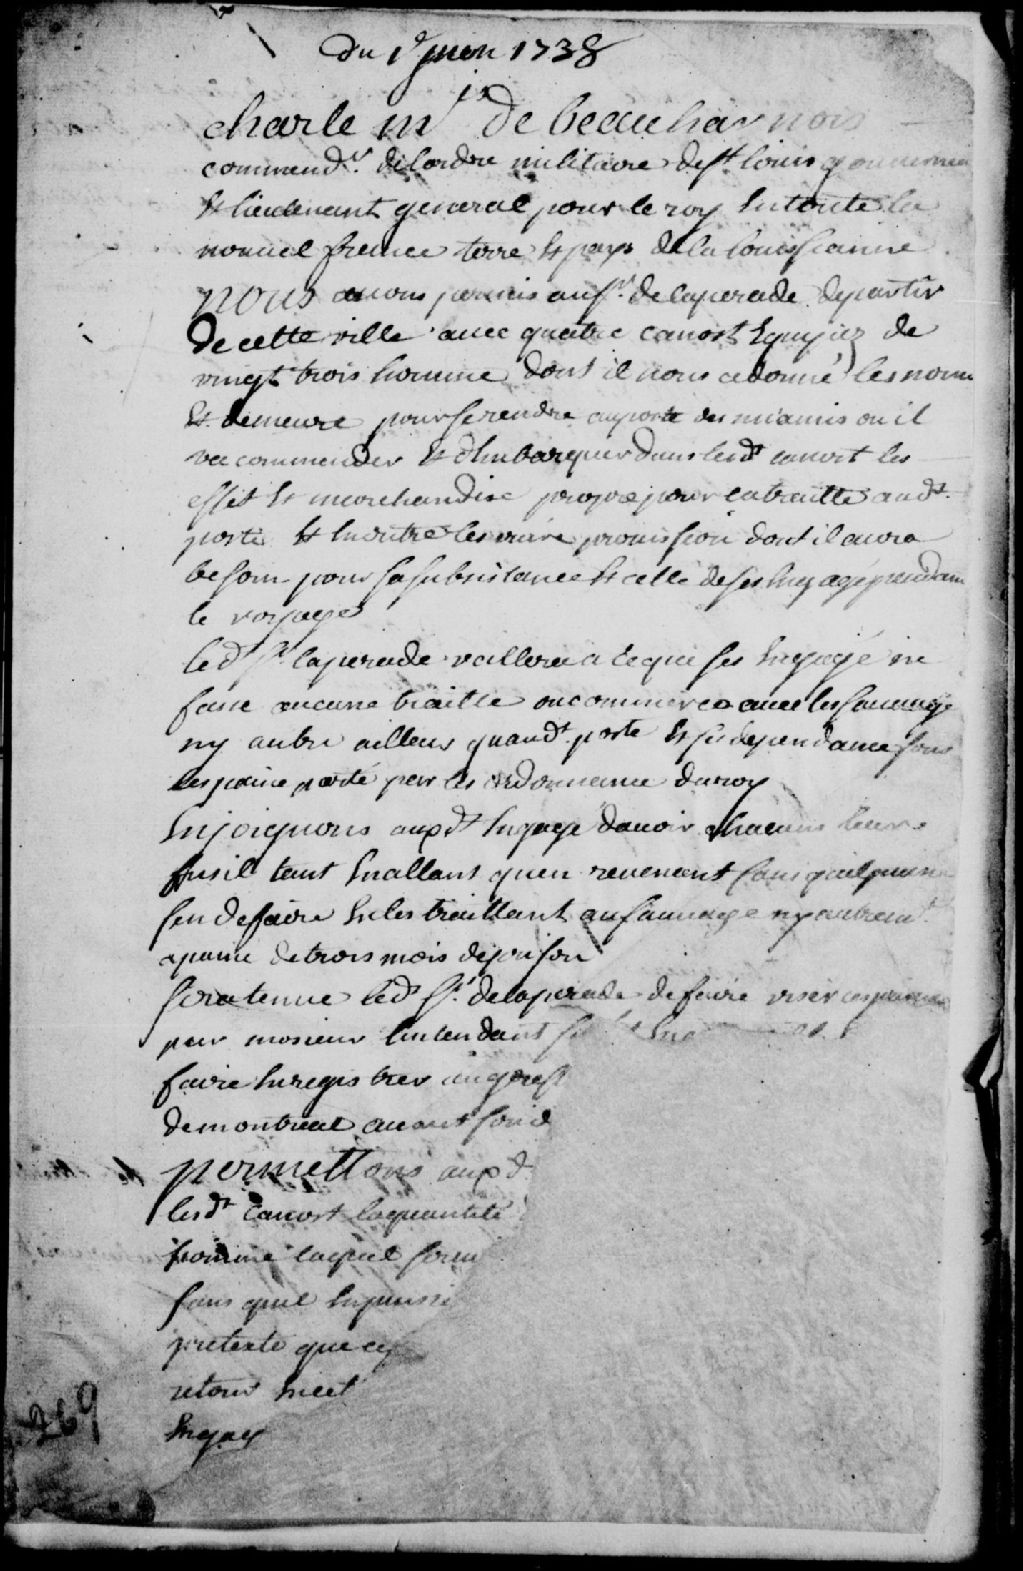 Du 1r juin 1738
charle mis De beauharnois
commend.r de lordre militaire de st louis gouverneur
Et lieutenant general pour le roy En toute la
nouvel france terre Et pays de la louissianne
nous avons permis au sr. de laperade de partir
De cette ville avec quatre canost Equipez de
vingt trois homme dont il nous a donné les noms
Et demeure pour se rendre au poste des miamis ou il
va commender Et dEmbarquer dans lesdt canost les
effet Et marchandise propre pour la traitte audt.
poste Et En outre les vivre provission dont il aura
besoin pour sa subsistance Et celle de ses Engagé pendant
le voyage
led sr. laperade veillera a ce que ses Engagé ne
fasse aucune traitte ou commerce avec les sauvage
ny autre ailleurs quaudt. poste Et ses dependance sous
les paine porté par les ordonnance du roy
Enjoignons auxdt Engagé davoir chacuns leurs
fusil tant En allant quen revenant sans quil puisse
sen defaire En les traittant au sauvage ny autremt.
a paine de trois mois de prison
sera tenue ledt sr. de laperade de faire viser
par monsieur lintendant
faire Enregistrer au greff
de montreal avant son d
permettons auxd
lesdt Canost la quantité
homme laquel sera
sans quil En puisse
pretexte que ce
retour
Engag
269